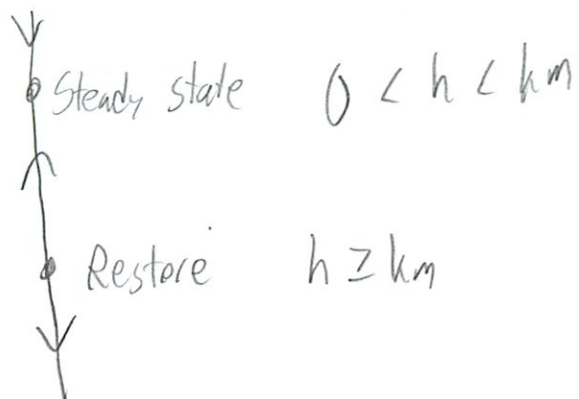 Steady state 0 < h < km
Restore h ≥ km